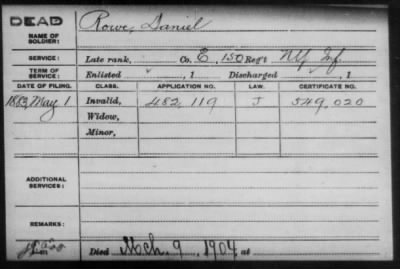 DEAD
Rowe, Daniel
NAME OF SOLDIER:
SERVICE: Late rank, Co. E, 150 Reg't NY Inf.
TERM OF SERVICE: Enlisted , 1 Discharged , 1
DATE OF FILING. CLASS. APPLICATION NO. LAW. CERTIFICATE NO.
1883, May 1 Invalid, 482,119 J 549,020
Widow,
Minor,
ADDITIONAL SERVICES:
REMARKS:
Died Mch. 9, 1904, at